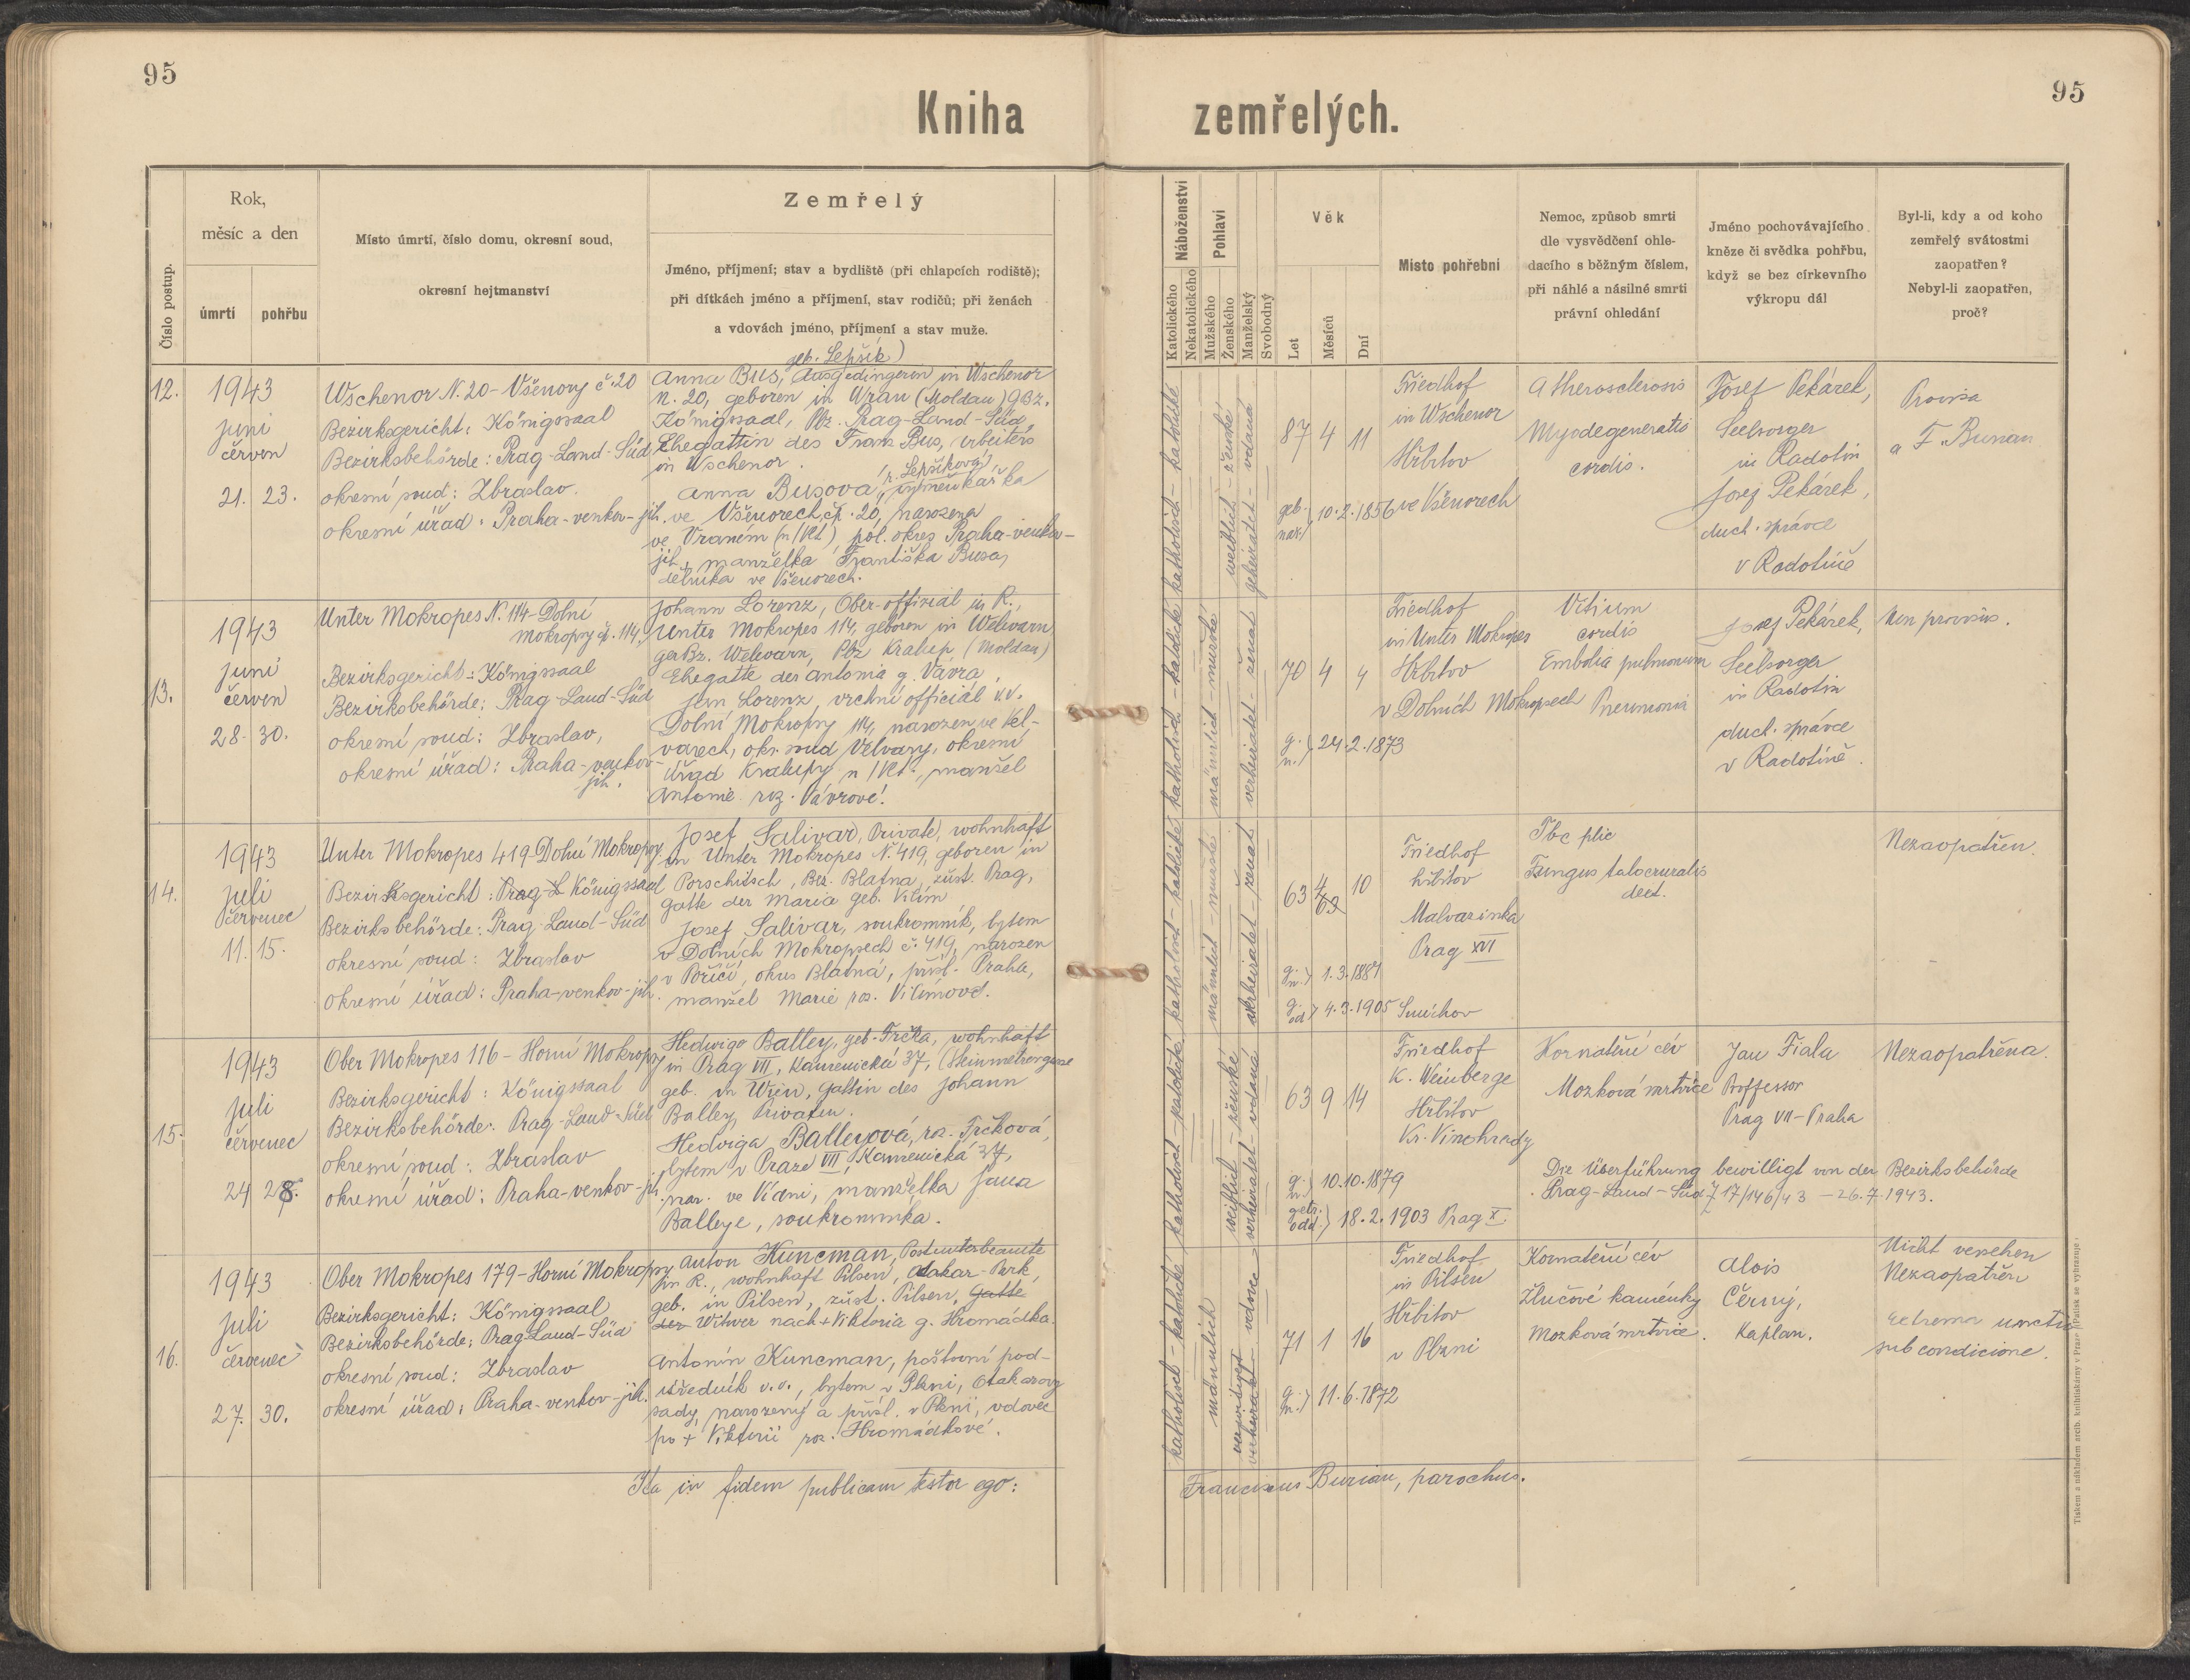 95
95
Kniha zemřelých.
Číslo postup.
Rok,
měsíc a den
úmrtí
pohřbu
Místo úmrtí, číslo domu, okresní soud,
okresní hejtmanství
Zemřelý
Jméno, příjmení; stav a bydliště (při chlapcích rodiště);
při dítkách jméno a příjmení, stav rodičů; při ženách
a vdovách jméno, příjmení a stav muže.
Náboženství
Katolického
Nekatolického
Pohlaví
Mužského
Ženského
Manželský
Svobodný
Věk
Let
Měsíců
Dní
Místo pohřební
Nemoc, způsob smrti
dle vysvědčení ohle-
dacího s běžným číslem,
při náhlé a násilné smrti
právní ohledání
Jméno pochovávajícího
kněze či svědka pohřbu,
když se bez církevního
výkropu dál
Byl-li, kdy a od koho
zemřelý svátostmi
zaopatřen?
Nebyl-li zaopatřen,
proč?
12.
1943
juni
červen
21. 23.
Wschenor N. 20 - Všenory č. 20
Bezirksgericht: Königssaal
Bezirksbehörde: Prag-Land-Süd
okresní soud: Zbraslav.
okresní úřad: Praha-venkov-jih.
geb. Lepšík)
Anna Bus, Ausgedingerin in Wschenor
N. 20, geboren in Wran (Moldau) GBz.
Königssaal, PBz. Prag-Land-Süd,
Ehegattin des Franz Bus, Arbeiters
in Wschenor.
r. Lepšíková)
Anna Busová, výměnkářka
ve Všenorech, čp. 20, narozena
ve Vraném (n/Vlt) pol. okres Praha-venkov-
jih, manželka Františka Busa,
dělníka ve Všenorech.
katholisch - katolické
weiblich - ženské
geheiratet - vdaná
87 4 11
geb.
nar.) 10.2.1856
Friedhof
in Wschenor
Hřbitov
ve Všenorech
Atherosclerosis
Myodegeneratio
cordis.
Josef Pekárek,
Seelsorger
in Radotin
Josef Pekárek,
duch. správce
v Radotíně
Provisa
a F. Burian
13.
1943
juni
červen
28. 30.
Unter Mokropes N. 114 - Dolní
Mokropsy čp. 114.
Bezirksgericht: Königssaal
Bezirksbehörde: Prag-Land-Süd
okresní soud: Zbraslav,
okresní úřad: Praha-venkov-
jih.
Johann Lorenz, Ober-offizial in R.,
Unter Mokropes 114, geboren in Welwarn
GerBz. Welwarn, PBz Kralup (Moldau)
Ehegatte der Antonia g. Vávra.
Jan Lorenz, vrchní officiál v.v.
Dolní Mokropsy 114, narozen ve Vel-
varech, okr. soud Velvary, okresní
úřad Kralupy n/Vlt., manžel
Antonie roz. Vávrové.
katholisch - katolické
männlich - mužské
verheiratet - ženat
70 4 4
g.
n.) 24.2.1873
Friedhof
in Unter Mokropes
Hřbitov
v Dolních Mokropsech
Vitium
cordis
Embolia pulmonum
Pneumonia
Josef Pekárek,
Seelsorger
in Radotin
duch. správce
v Radotíně.
Non provisus.
14.
1943
juli
červenec
11. 15.
Unter Mokropes 419 - Dolní Mokropsy
Bezirksgericht: Prag-L Königssaal
Bezirksbehörde: Prag-Land-Süd
okresní soud: Zbraslav
okresní úřad: Praha-venkov-jih.
Josef Salivar, Private, wohnhaft
in Unter Mokropes N. 419, geboren in
Porschitsch, Bez. Blatna, zúst. Prag,
Gatte der Maria geb. Vilím
Josef Salivar, soukromník, bytem
v Dolních Mokropsech č. 419, narozen
v Poříčí, okres Blatná, přísl. Praha,
manžel Marie roz. Vilímové.
katholisch - katolické
männlich - mužské
verheiratet - ženat
63 4 10
g.
n.) 1.3.1881
g.
od.) 4.3.1905 Smíchov
Friedhof
hřbitov
Malvazinka
Prag XVI
Tbc plic
Fungus talocruralis
dext.
Nezaopatřen.
15.
1943
juli
červenec
24 28.
Ober Mokropes 116 - Horní Mokropsy
Bezirksgericht: Königssaal
Bezirksbehörde: Prag-Land-Süd
okresní soud: Zbraslav
okresní úřad: Praha-venkov-jih.
Hedwiga Balley, geb. Trčka, wohnhaft
in Prag VII, Kamenická 37, (Steinmetzengasse
geb. in Wien, Gattin des Johann
Balley, Privaten.
Hedviga Balleyová, roz. Trčková,
bytem v Praze VII, Kamenická 37,
nar. ve Vídni, manželka Jana
Balleye, soukromníka.
katholisch - katolické
weiblich - ženské
verheiratet - vdaná
63 9 14
g.
n.) 10.10.1879
getr.
odd.) 18.2.1903 Prag X.
Friedhof
K. Weinberge
Hřbitov
Kr. Vinohrady
Kornatění cév
Mozková mrtvice
Jan Fiala
Proffessor
Prag VII - Praha
Nezaopatřena.
Die Überführung bewilligt von der Bezirksbehörde
Prag-Land-Süd Z 17/146/43 - 26.7.1943.
16.
1943
juli
červenec
27. 30.
Ober Mokropes 179 - Horní Mokropsy
Bezirksgericht: Königssaal
Bezirksbehörde: Prag-Land-Süd
okresní soud: Zbraslav
okresní úřad: Praha-venkov-jih.
Anton Kuncman, Postunterbeamte
in R., wohnhaft Pilsen, Otakar-Park,
geb. in Pilsen, zúst. Pilsen, Gatte
der Witwer nach + Viktoria g. Hromádka.
Antonín Kuncman, poštovní pod-
úředník v.v., bytem v Plzni, Otakarovy
sady, narozený a přísl. v Plzni, vdovec
po + Viktorii roz. Hromádkové.
katholisch - katolické
männlich
verwitwet - vdovec
71 1 16
g.
n.) 11.6.1872
Friedhof
in Pilsen
Hřbitov
v Plzni
Kornatění cév
Žlučové kaménky
Mozková mrtvice.
Alois
Černý,
Kaplan.
Nicht versehen
Nezaopatřen
Extrema unctio
sub condicione.
Ita in fidem publicam testor ego:
Franciscus Burian, parochus.
Tiskem a nákladem arcib. knihtiskárny v Praze. (Patisk se vyhrazuje.)